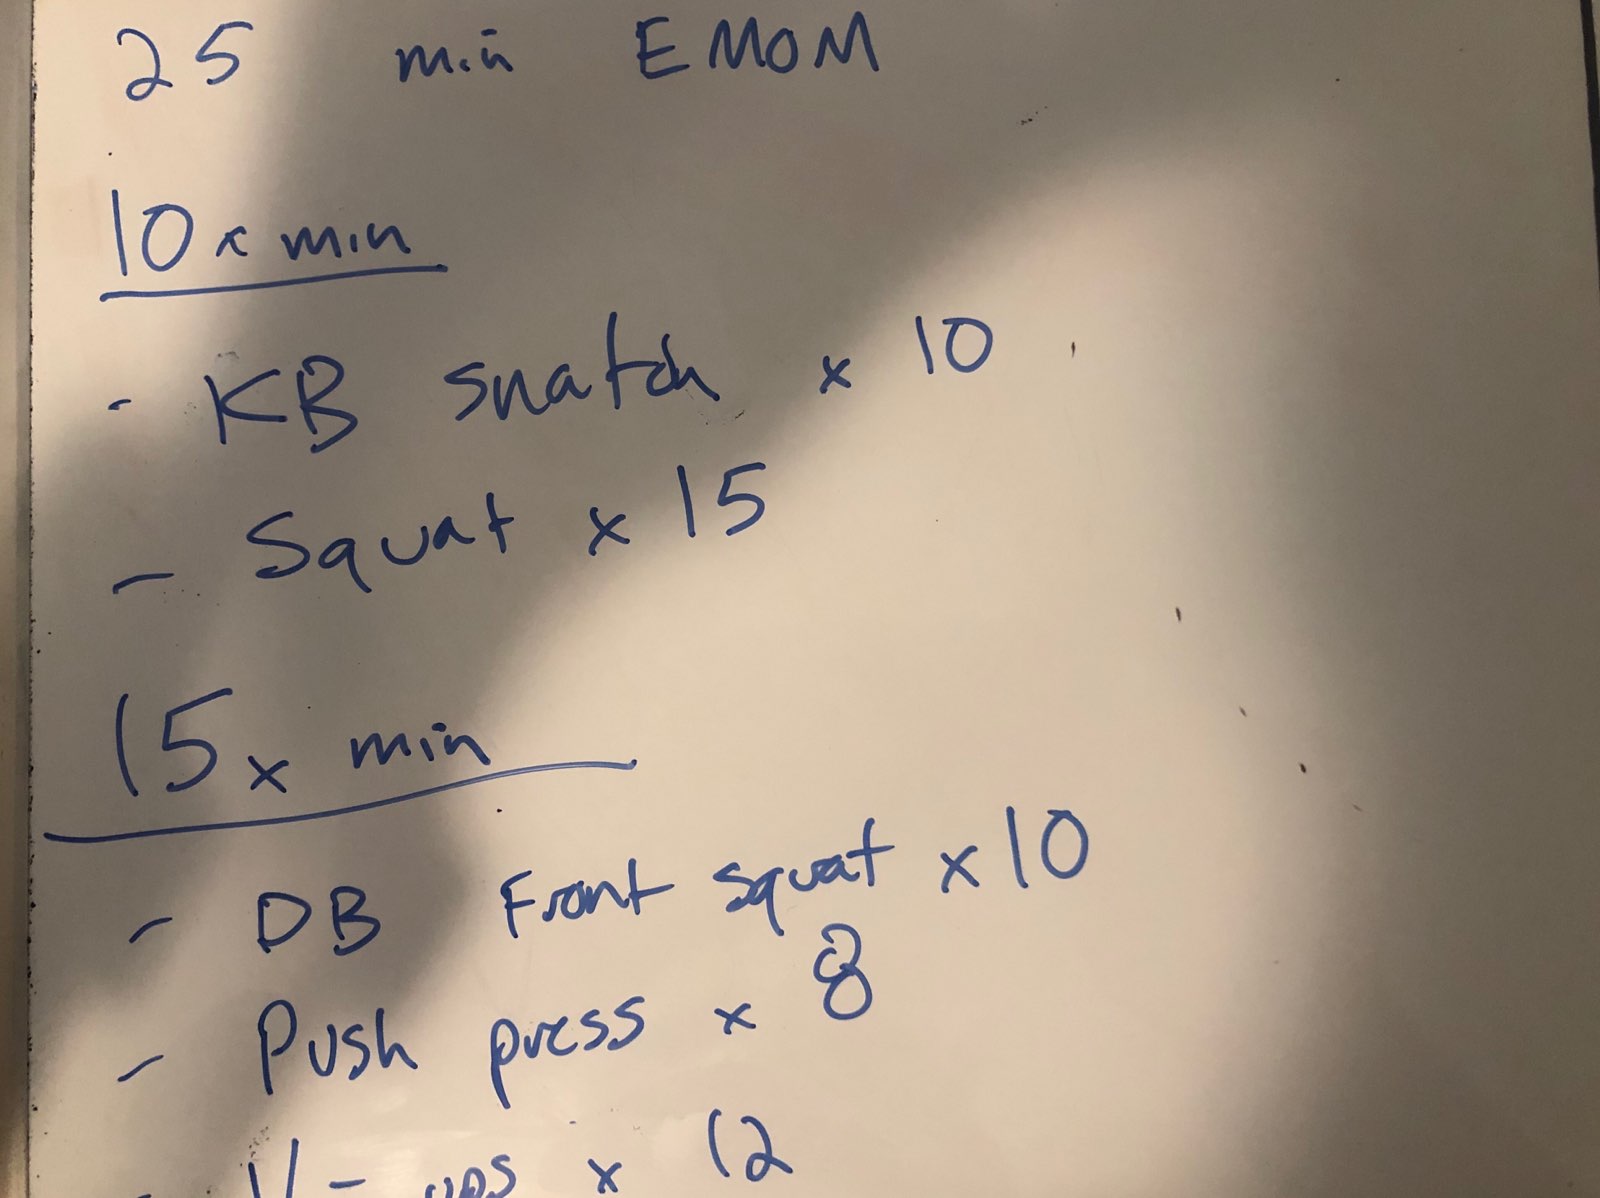 25 min EMOM
10 x min
- KB snatch x 10
- Squat x 15
15 x min
- DB Front squat x 10
- Push press x 8
- V-ups x 12